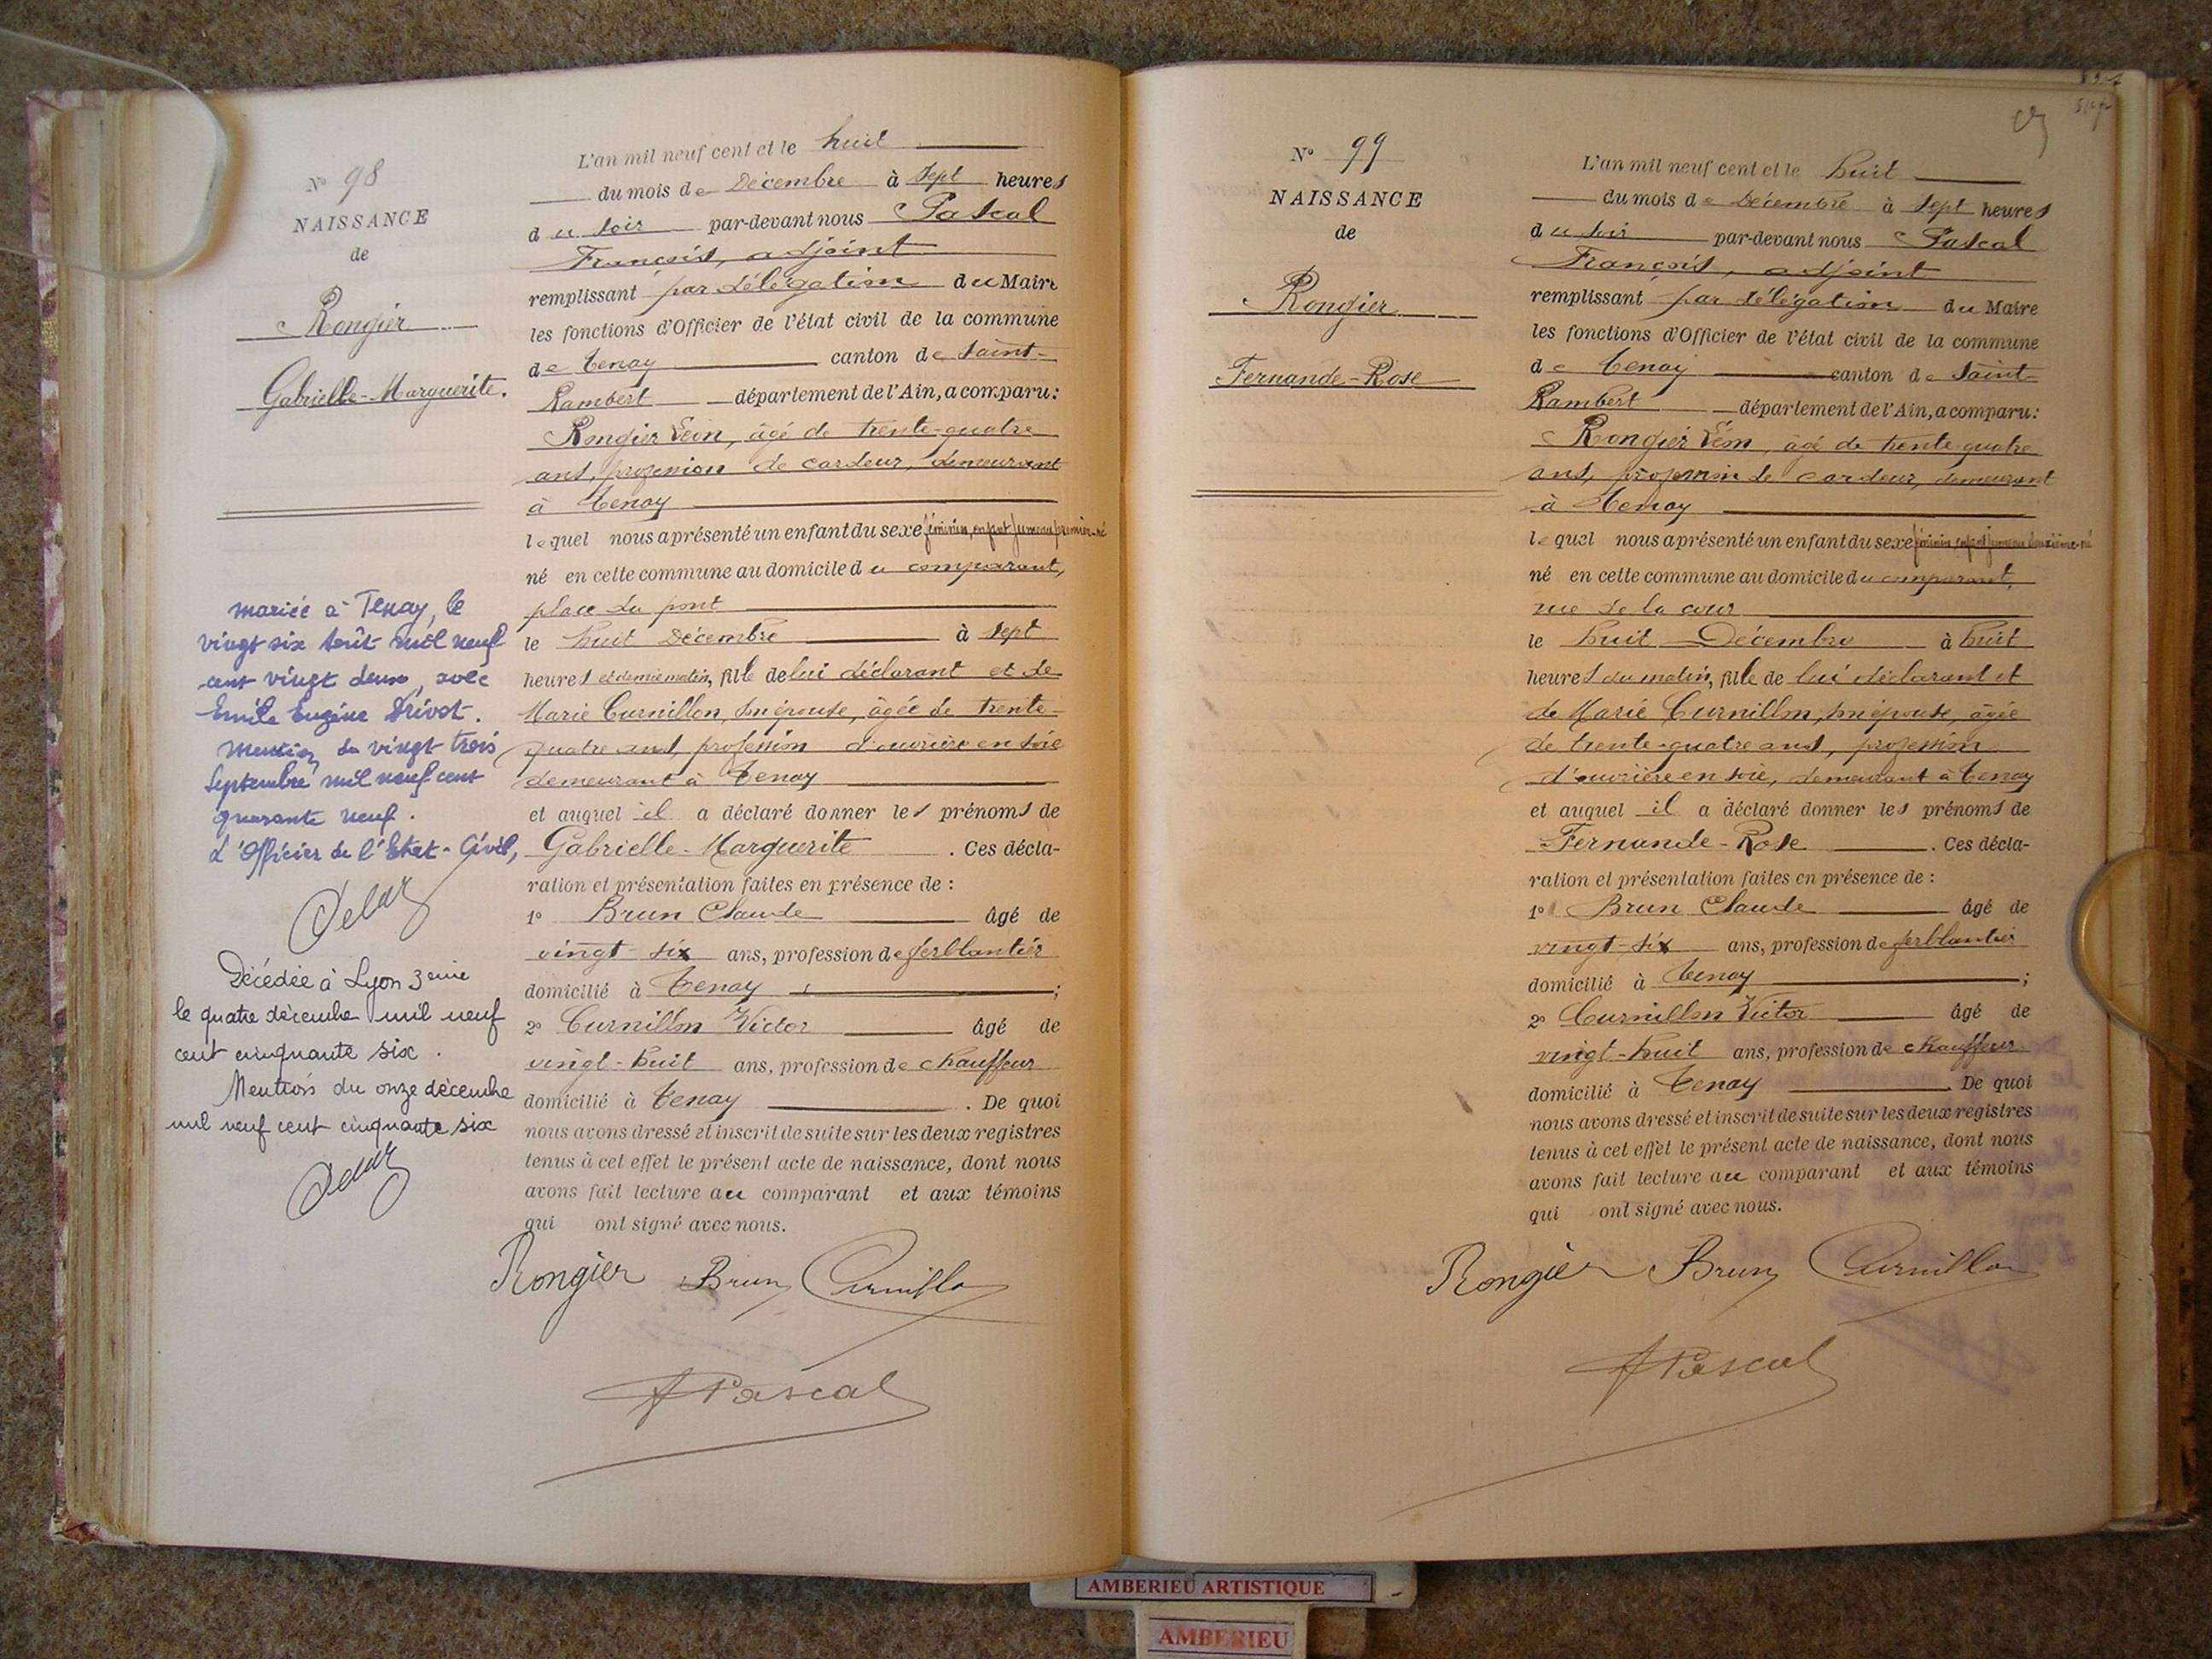 N° 98
NAISSANCE
de
Rongier
Gabrielle-Marguerite.
mariée à Tenay, le
vingt six Août mil neuf
cent vingt deux, avec
Emile Eugène Drivot.
Mention du vingt trois
Septembre mil neuf cent
quarante neuf.
L'Officier de l'Etat-Civil,
Décédée à Lyon 3eme
le quatre décembre mil neuf
cent cinquante six.
Mention du onze décembre
mil neuf cent cinquante six
L'an mil neuf cent et le huit
du mois de Décembre à Sept heures
du soir par-devant nous Pascal
François, adjoint
remplissant par délégation du Maire
les fonctions d'Officier de l'état civil de la commune
de Tenay canton de Saint-
Rambert département de l'Ain, a comparu :
Rongier Léon, âgé de trente-quatre
ans, profession de cardeur, demeurant
à Tenay
lequel nous a présenté un enfant du sexe féminin, enfant jumeau premier-né
né en cette commune au domicile du comparant,
place du pont
le huit Décembre à sept
heures et demie matin, fille de lui déclarant et de
Marie Curnillon, son épouse, âgée de trente-
quatre ans, profession d'ouvrière en soie
demeurant à Tenay
et auquel il a déclaré donner les prénoms de
Gabrielle-Marguerite . Ces décla-
ration et présentation faites en présence de :
1° Brun Claude âgé de
vingt-six ans, profession de ferblantier
domicilié à Tenay ;
2° Curnillon Victor âgé de
vingt-huit ans, profession de chauffeur
domicilié à Tenay . De quoi
nous avons dressé et inscrit de suite sur les deux registres
tenus à cet effet le présent acte de naissance, dont nous
avons fait lecture au comparant et aux témoins
qui ont signé avec nous.
Rongier Brun Curnillon
Pascal
N° 99
NAISSANCE
de
Rongier
Fernande-Rose
L'an mil neuf cent et le huit
du mois de Décembre à Sept heures
du soir par-devant nous Pascal
François, adjoint
remplissant par délégation du Maire
les fonctions d'Officier de l'état civil de la commune
de Tenay canton de Saint-
Rambert département de l'Ain, a comparu :
Rongier Léon, âgé de trente-quatre
ans, profession de cardeur, demeurant
à Tenay
lequel nous a présenté un enfant du sexe féminin, enfant jumeau deuxième-né
né en cette commune au domicile du comparant,
rue de la cour
le huit Décembre à huit
heures du matin, fille de lui déclarant et
de Marie Curnillon, son épouse, âgée
de trente-quatre ans, profession
d'ouvrière en soie, demeurant à Tenay
et auquel il a déclaré donner les prénoms de
Fernande-Rose . Ces décla-
ration et présentation faites en présence de :
1° Brun Claude âgé de
vingt-six ans, profession de ferblantier
domicilié à Tenay ;
2° Curnillon Victor âgé de
vingt-huit ans, profession de chauffeur
domicilié à Tenay . De quoi
nous avons dressé et inscrit de suite sur les deux registres
tenus à cet effet le présent acte de naissance, dont nous
avons fait lecture au comparant et aux témoins
qui ont signé avec nous.
Rongier Brun Curnillon
Pascal
AMBERIEU ARTISTIQUE
AMBERIEU